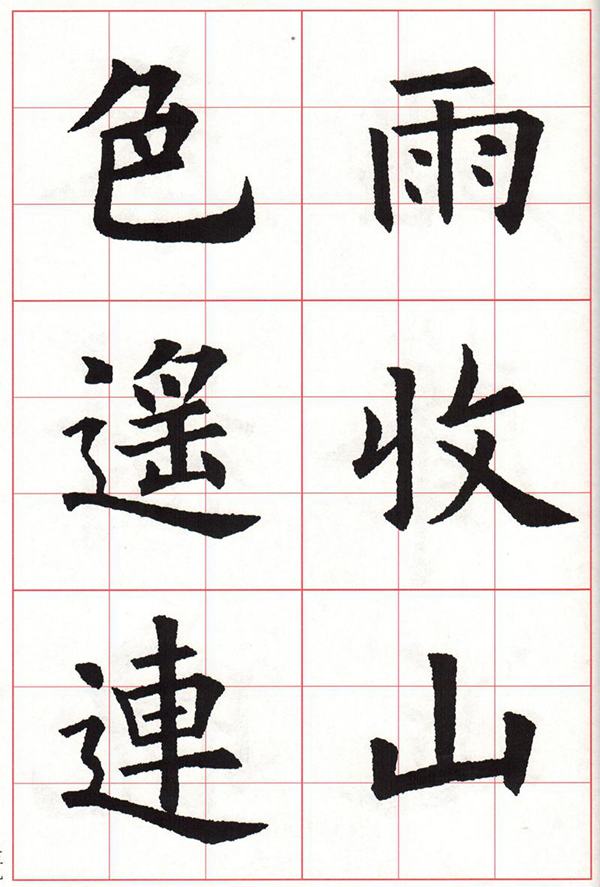 雨收山
色遥連